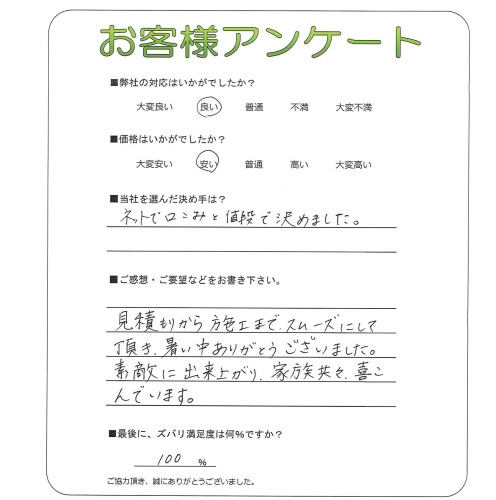 お客様アンケート
■弊社の対応はいかがでしたか？
大変良い 良い 普通 不満 大変不満
■価格はいかがでしたか？
大変安い 安い 普通 高い 大変高い
■当社を選んだ決め手は？
ネットで口こみと値段で決めました。
■ご感想・ご要望などをお書き下さい。
見積もりから施工まで、スムーズにして
頂き、暑い中ありがとうございました。
素敵に出来上がり、家族共々、喜こ
んでいます。
■最後に、ズバリ満足度は何%ですか？
100 %
ご協力頂き、誠にありがとうございました。